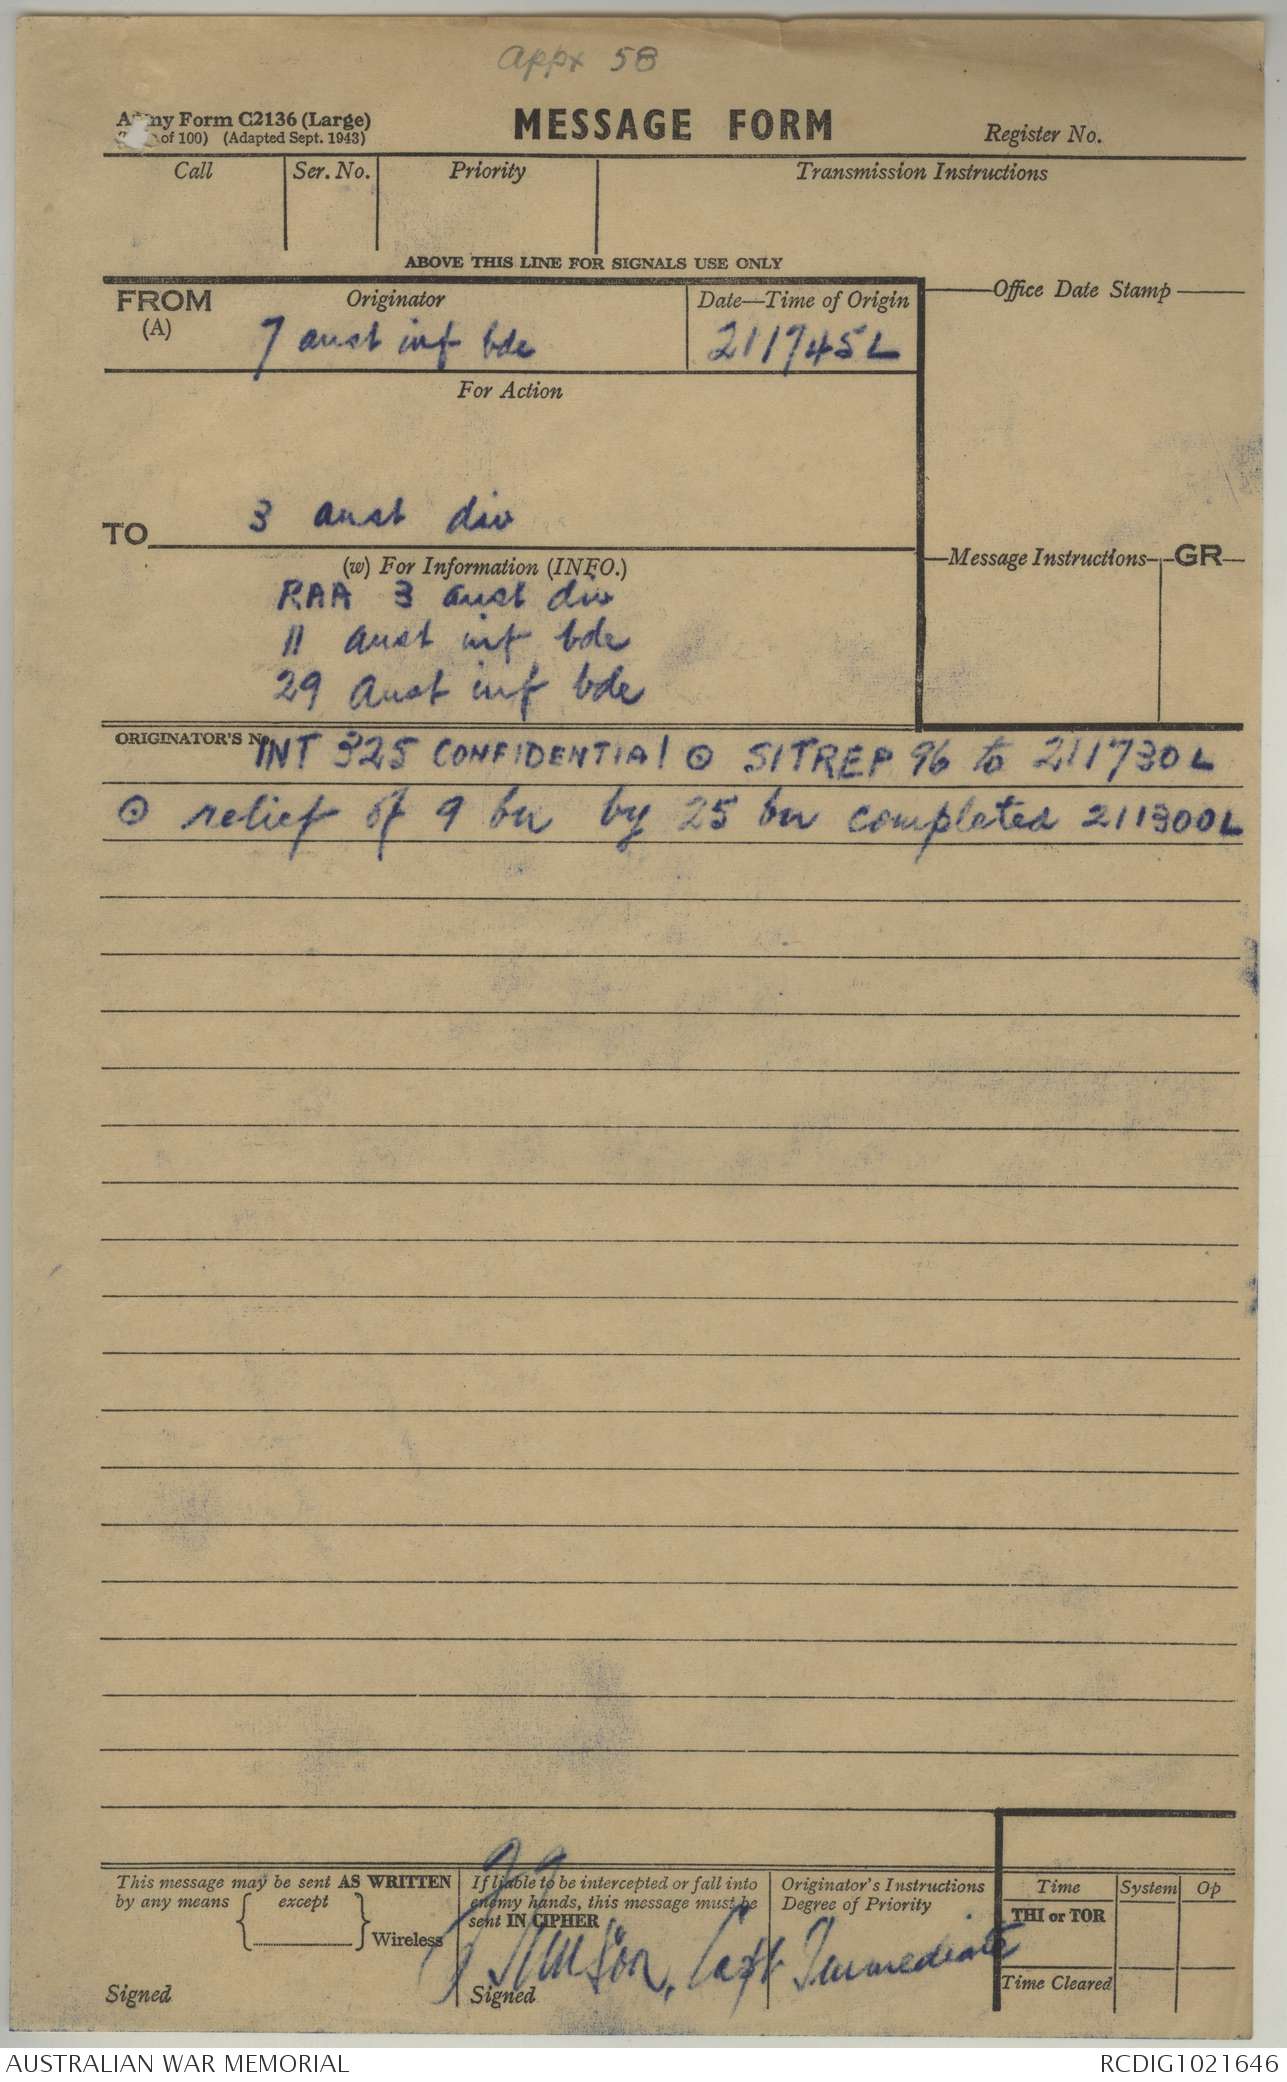 Appx 58
Army Form C2136 (Large)
of 100) (Adapted Sept. 1943)
MESSAGE FORM
Register No.
Call
Ser. No.
Priority
Transmission Instructions
ABOVE THIS LINE FOR SIGNALS USE ONLY
FROM
(A)
Originator
7 aust inf bde
Date—Time of Origin
211745L
Office Date Stamp
For Action
TO
3 aust div
(w) For Information (INFO.)
RAA 3 aust div
11 aust inf bde
29 aust inf bde
Message Instructions
GR
ORIGINATOR'S No.
INT 325 CONFIDENTIAL ⊙ SITREP 96 to 211730L
⊙ relief of 9 bn by 25 bn completed 211300L
This message may be sent AS WRITTEN
by any means
except
Wireless
Signed
If liable to be intercepted or fall into
enemy hands, this message must be
sent IN CIPHER
Capt
Signed
Originator's Instructions
Degree of Priority
Immediate
Time
System
Op
THI or TOR
Time Cleared
AUSTRALIAN WAR MEMORIAL
RCDIG1021646